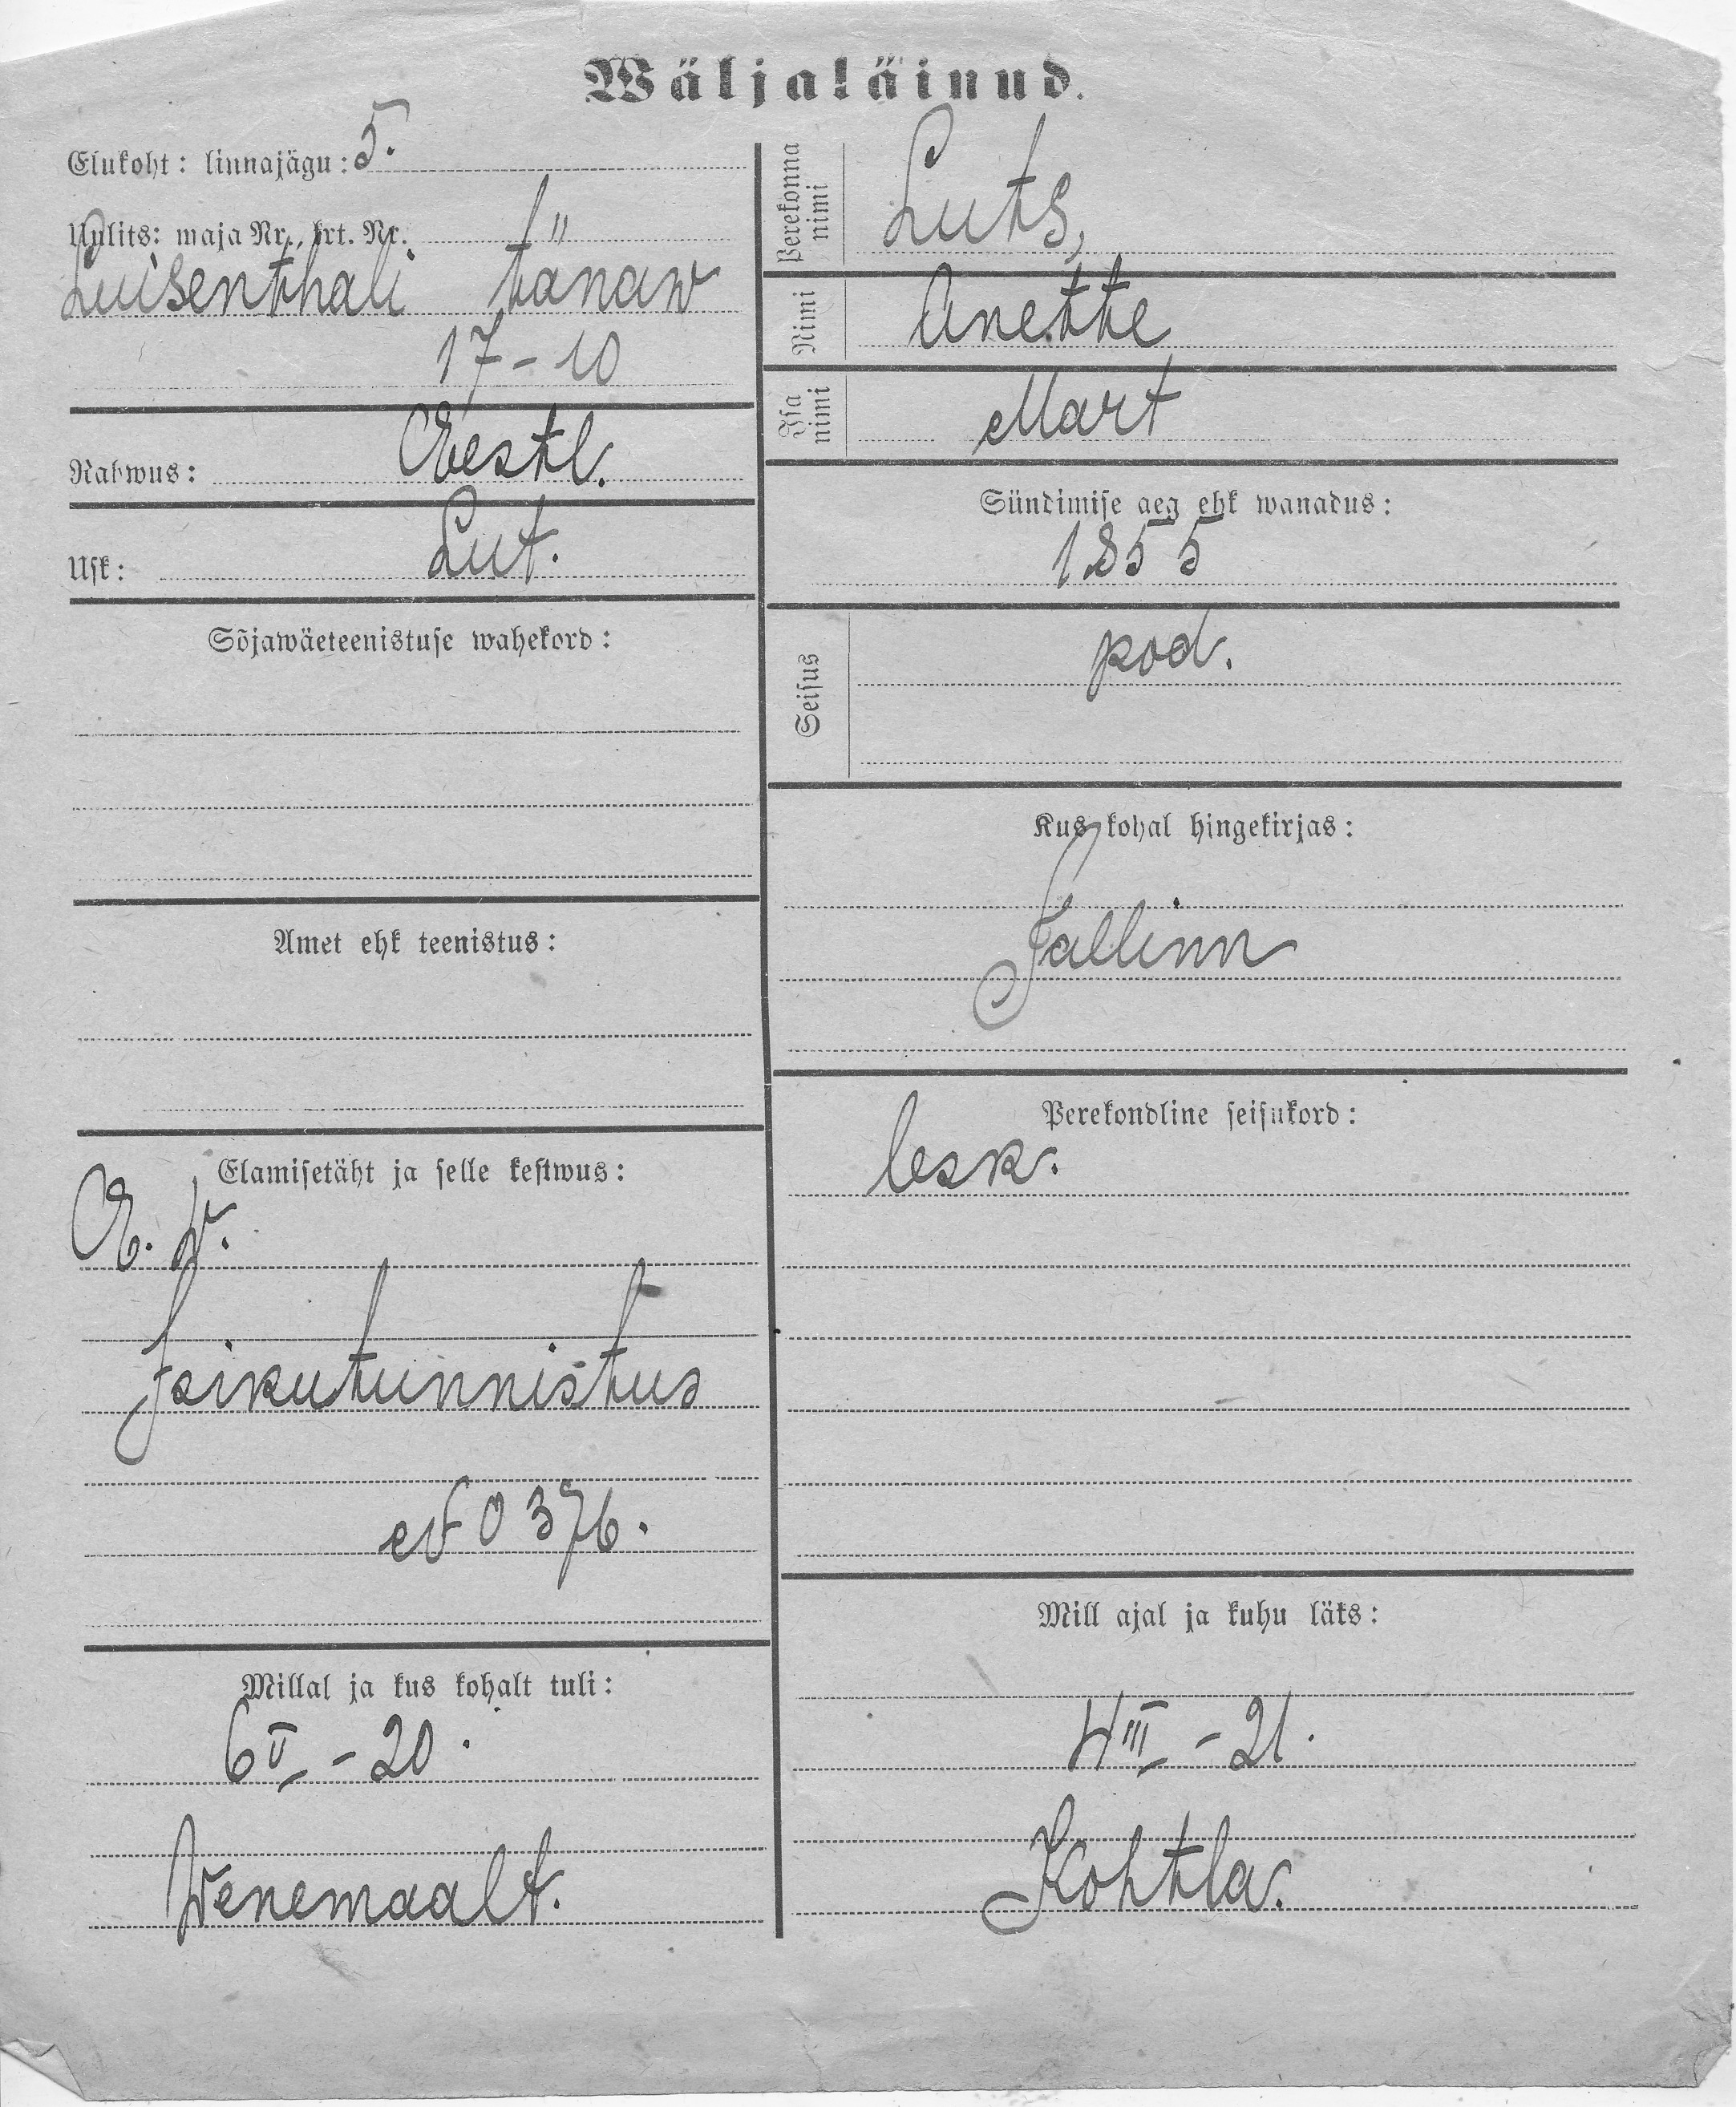 Wäljaläinud.
Elukoht: linnajägu: 5.
Uulits: maja Nr., krt. Nr.
Luisenthali tänaw
17-10
Rahwus: Eestl.
Usk: Lut.
Sõjawäeteenistuse wahekord:
Amet ehk teenistus:
Elamisetäht ja selle kestwus:
E. W.
Isikutunnistus
№ 0376.
Millal ja kus kohalt tuli:
6 II - 20.
Wenemaalt.
Perekonna nimi
Luts,
Nimi
Anette
Isa nimi
Mart
Sündimise aeg ehk wanadus:
1855
Seisus
pod.
Kus kohal hingekirjas:
Tallinn
Perekondline seisukord:
lesk.
Mill ajal ja kuhu läks:
4 III - 21.
Kohtla.